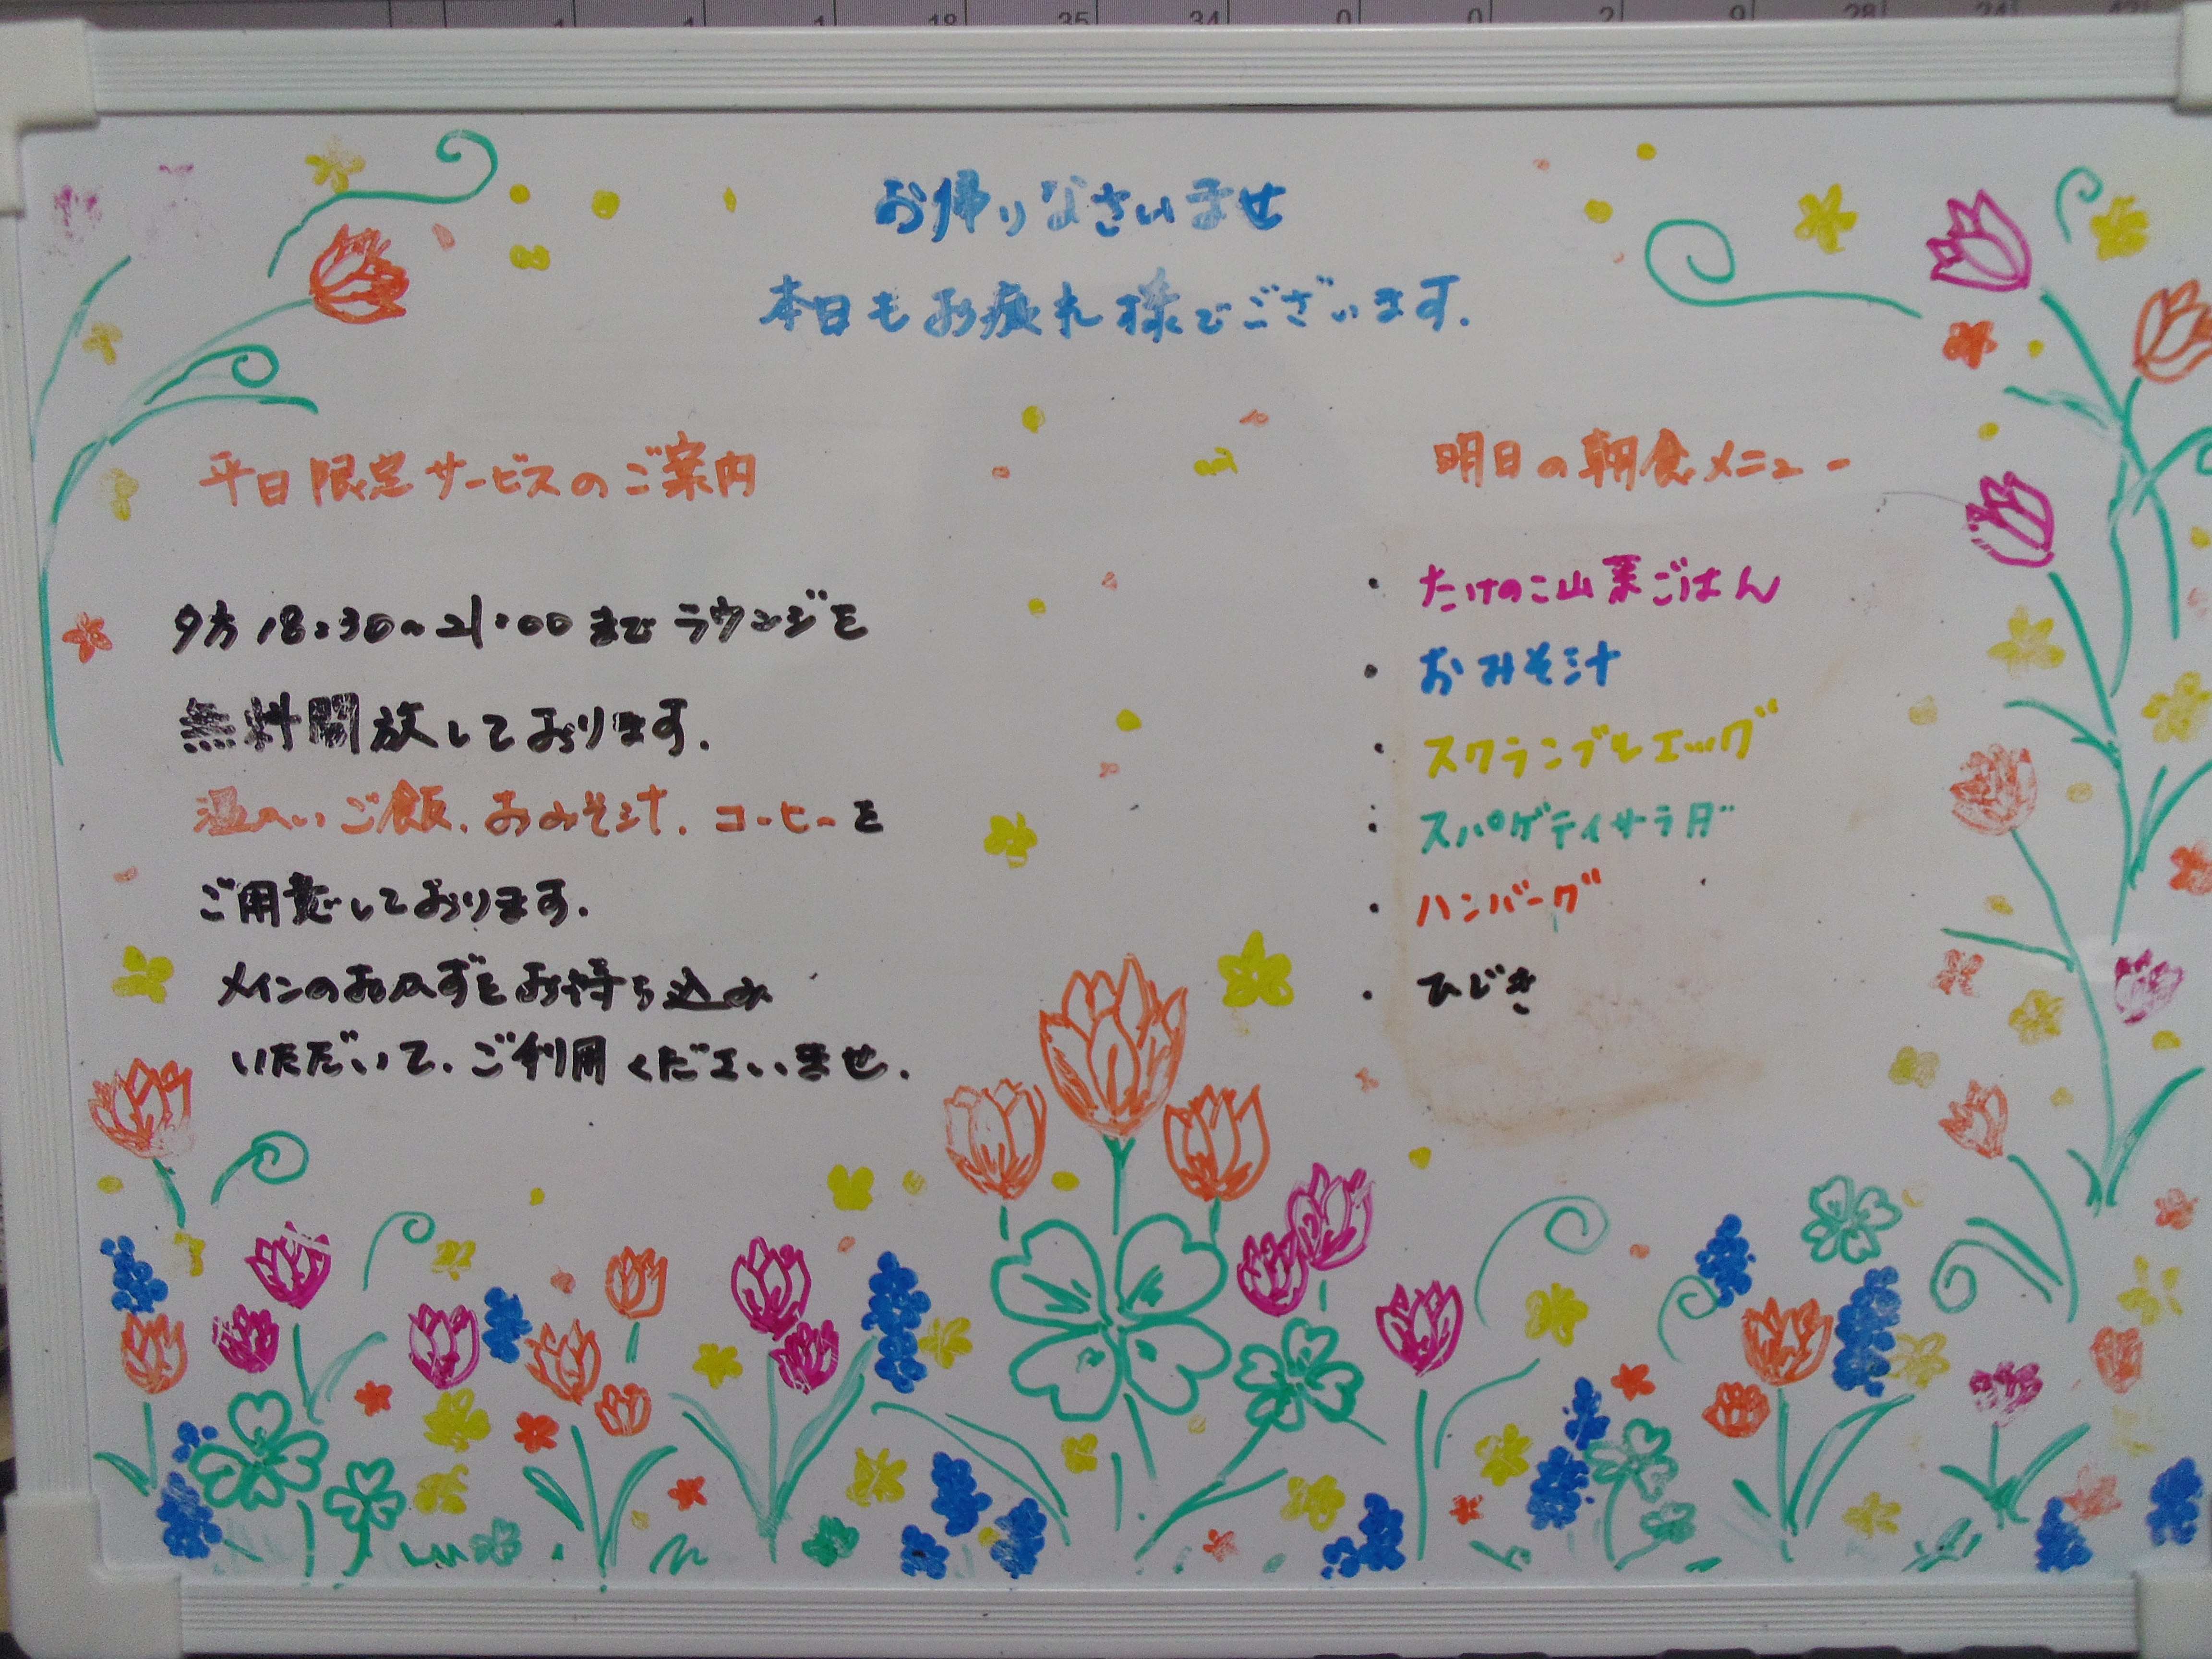 18 35 34 0 0 2 9 28 24
お帰りなさいませ
本日もお疲れ様でございます.
平日限定サービスのご案内
夕方18:30～21:00までラウンジを
無料開放しております.
温かいご飯.おみそ汁.コーヒーを
ご用意しております.
メインのおかずをお持ち込み
いただいて.ご利用くださいませ.
明日の朝食メニュー
・たけのこ山菜ごはん
・おみそ汁
・スクランブルエッグ
・スパゲティサラダ
・ハンバーグ
・ひじき